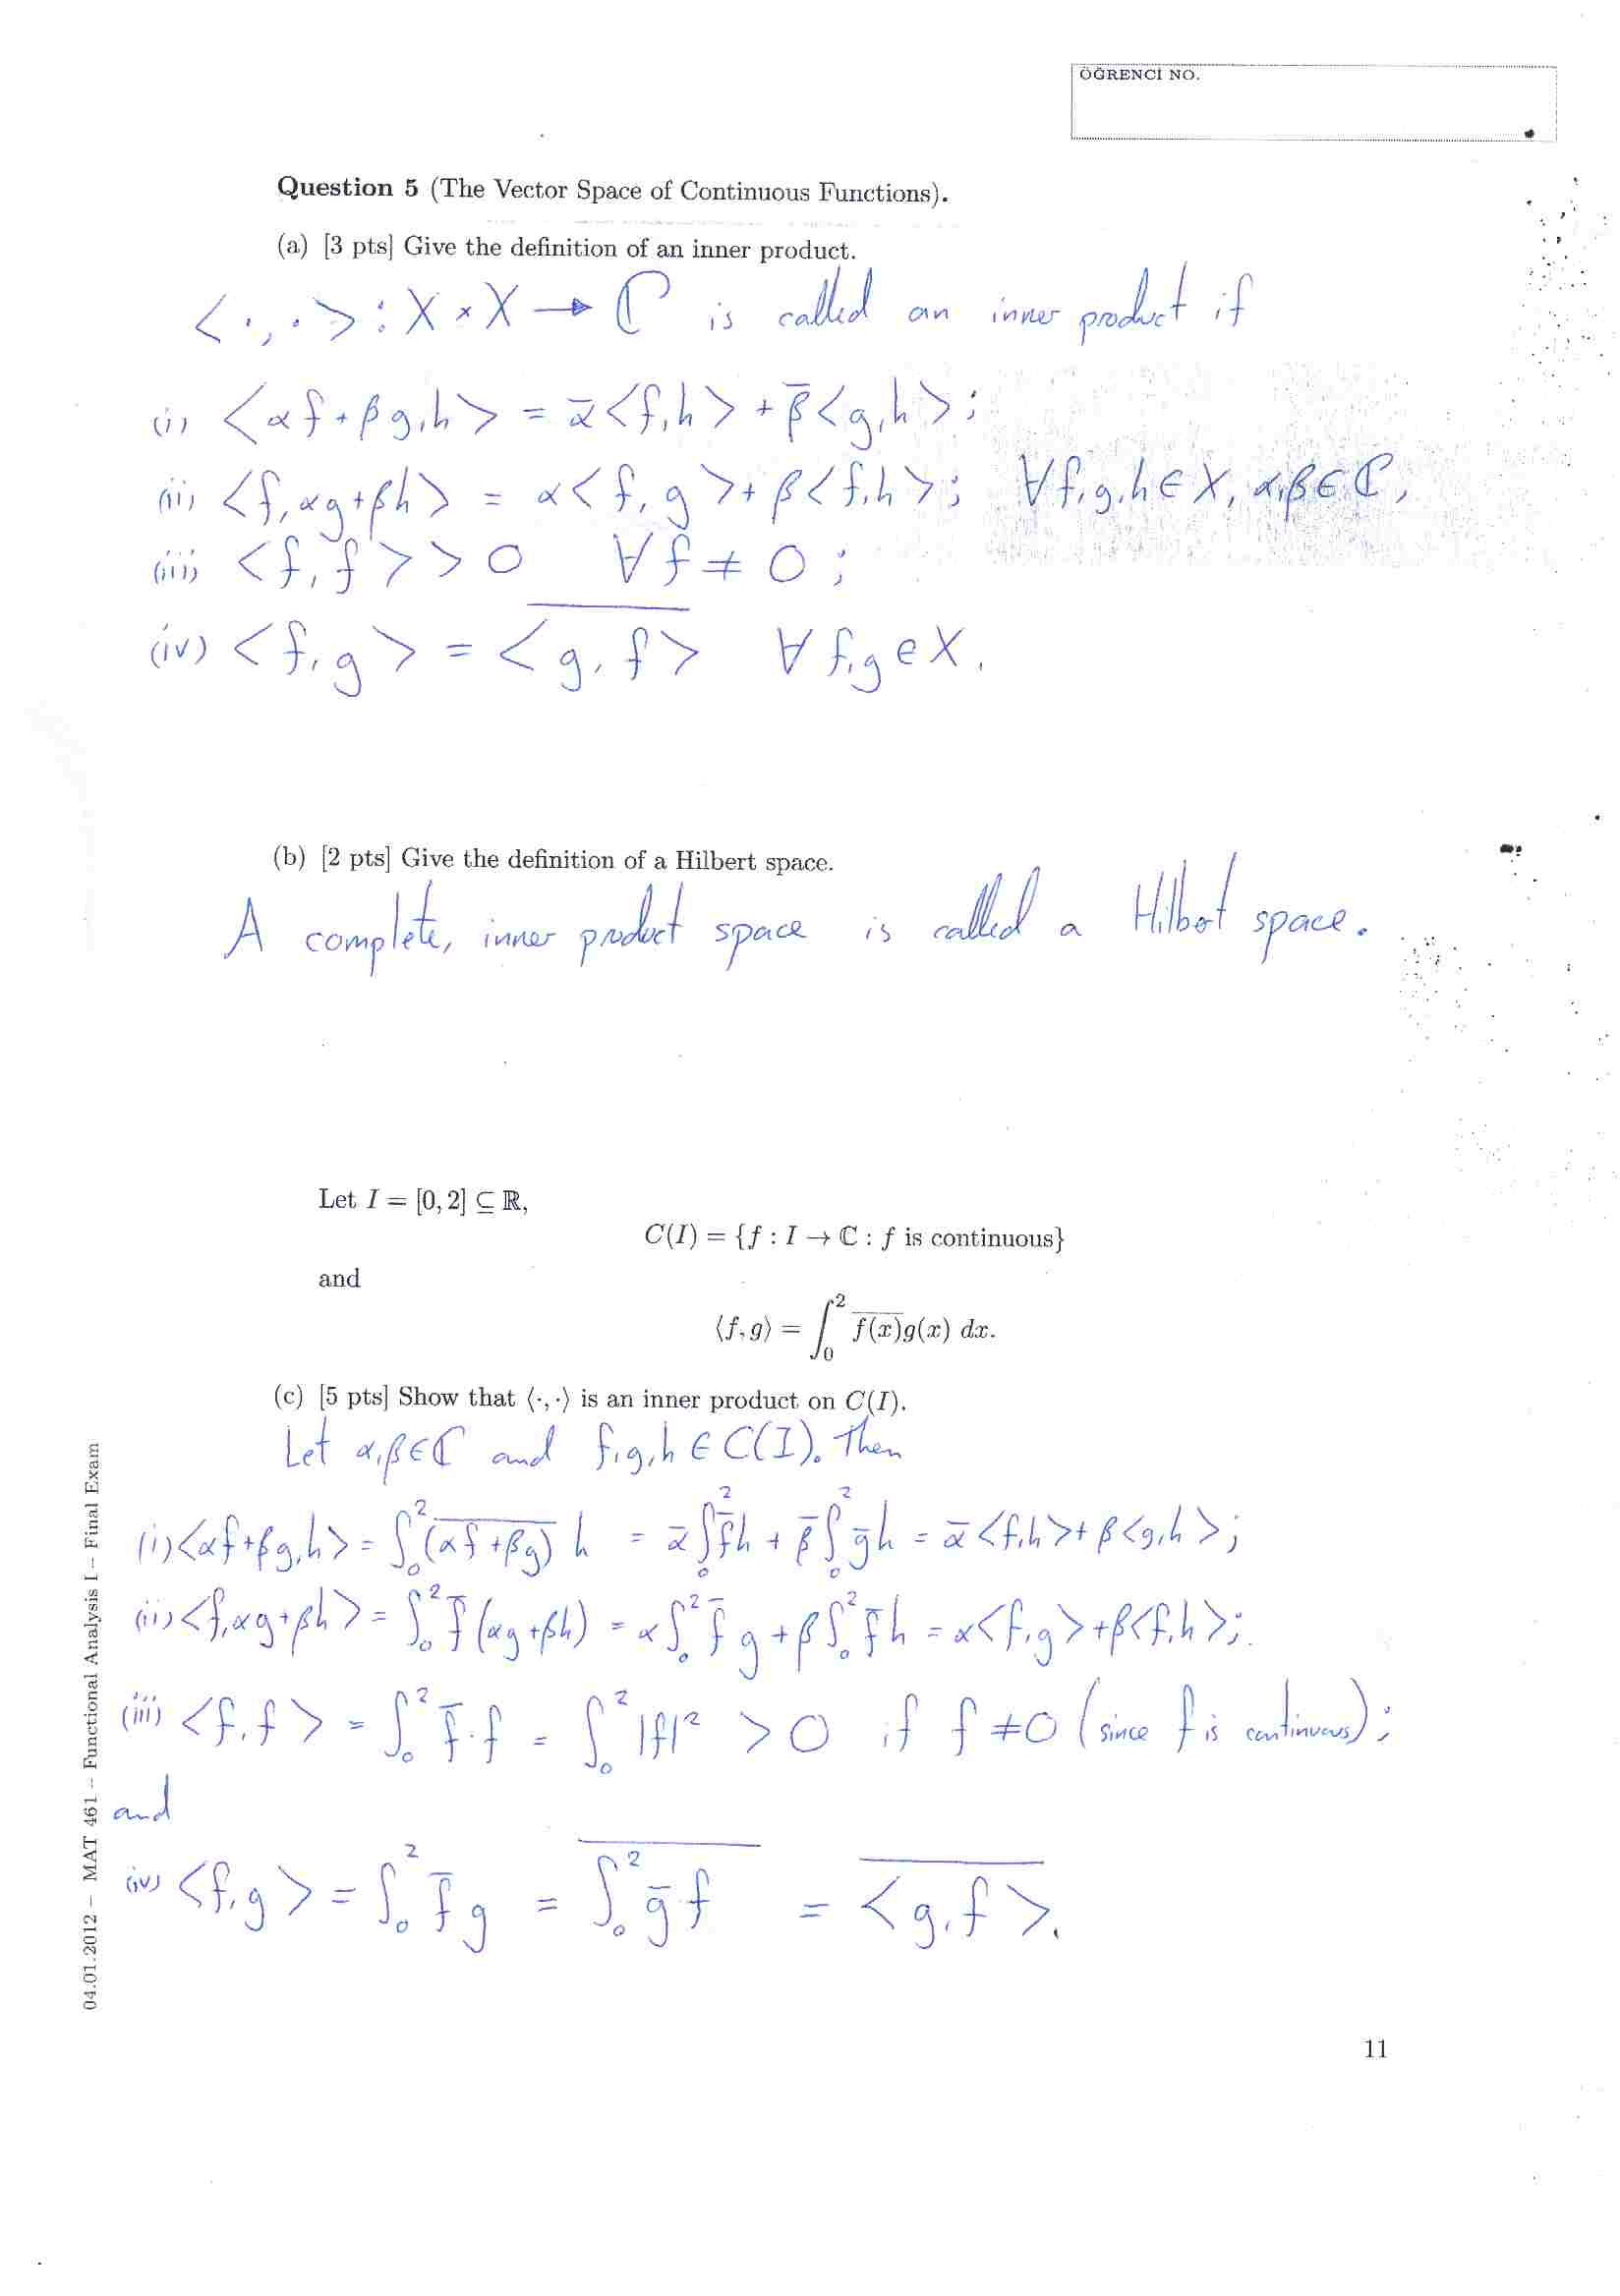 ÖĞRENCİ NO.
Question 5 (The Vector Space of Continuous Functions).
(a) [3 pts] Give the definition of an inner product.
<·,·> : X × X → ℂ is called an inner product if
(i) <αf + βg, h> = ᾱ<f,h> + β̄<g,h>;
(ii) <f, αg+βh> = α<f,g> + β<f,h>; ∀f,g,h ∈ X, α,β ∈ ℂ,
(iii) <f,f> > 0 ∀f ≠ 0;
(iv) <f,g> = \overline{<g,f>} ∀f,g ∈ X.
(b) [2 pts] Give the definition of a Hilbert space.
A complete, inner product space is called a Hilbert space.
Let I = [0, 2] ⊆ ℝ,
C(I) = {f : I → ℂ : f is continuous}
and
⟨f, g⟩ = ∫_0^2 \overline{f(x)}g(x) dx.
(c) [5 pts] Show that ⟨·, ·⟩ is an inner product on C(I).
Let α,β ∈ ℂ and f,g,h ∈ C(I). Then
(i) <αf+βg,h> = ∫_0^2 \overline{(αf+βg)} h = ᾱ∫_0^2 f̄h + β̄∫_0^2 ḡh = ᾱ<f,h> + β<g,h>;
(ii) <f,αg+βh> = ∫_0^2 f̄(αg+βh) = α∫_0^2 f̄g + β∫_0^2 f̄h = α<f,g>+β<f,h>;
(iii) <f,f> = ∫_0^2 f̄·f = ∫_0^2 |f|² > 0 if f ≠ 0 (since f is continuous);
and
(iv) <f,g> = ∫_0^2 f̄g = \overline{∫_0^2 ḡf} = \overline{<g,f>}.
04.01.2012 – MAT 461 – Functional Analysis I – Final Exam
11